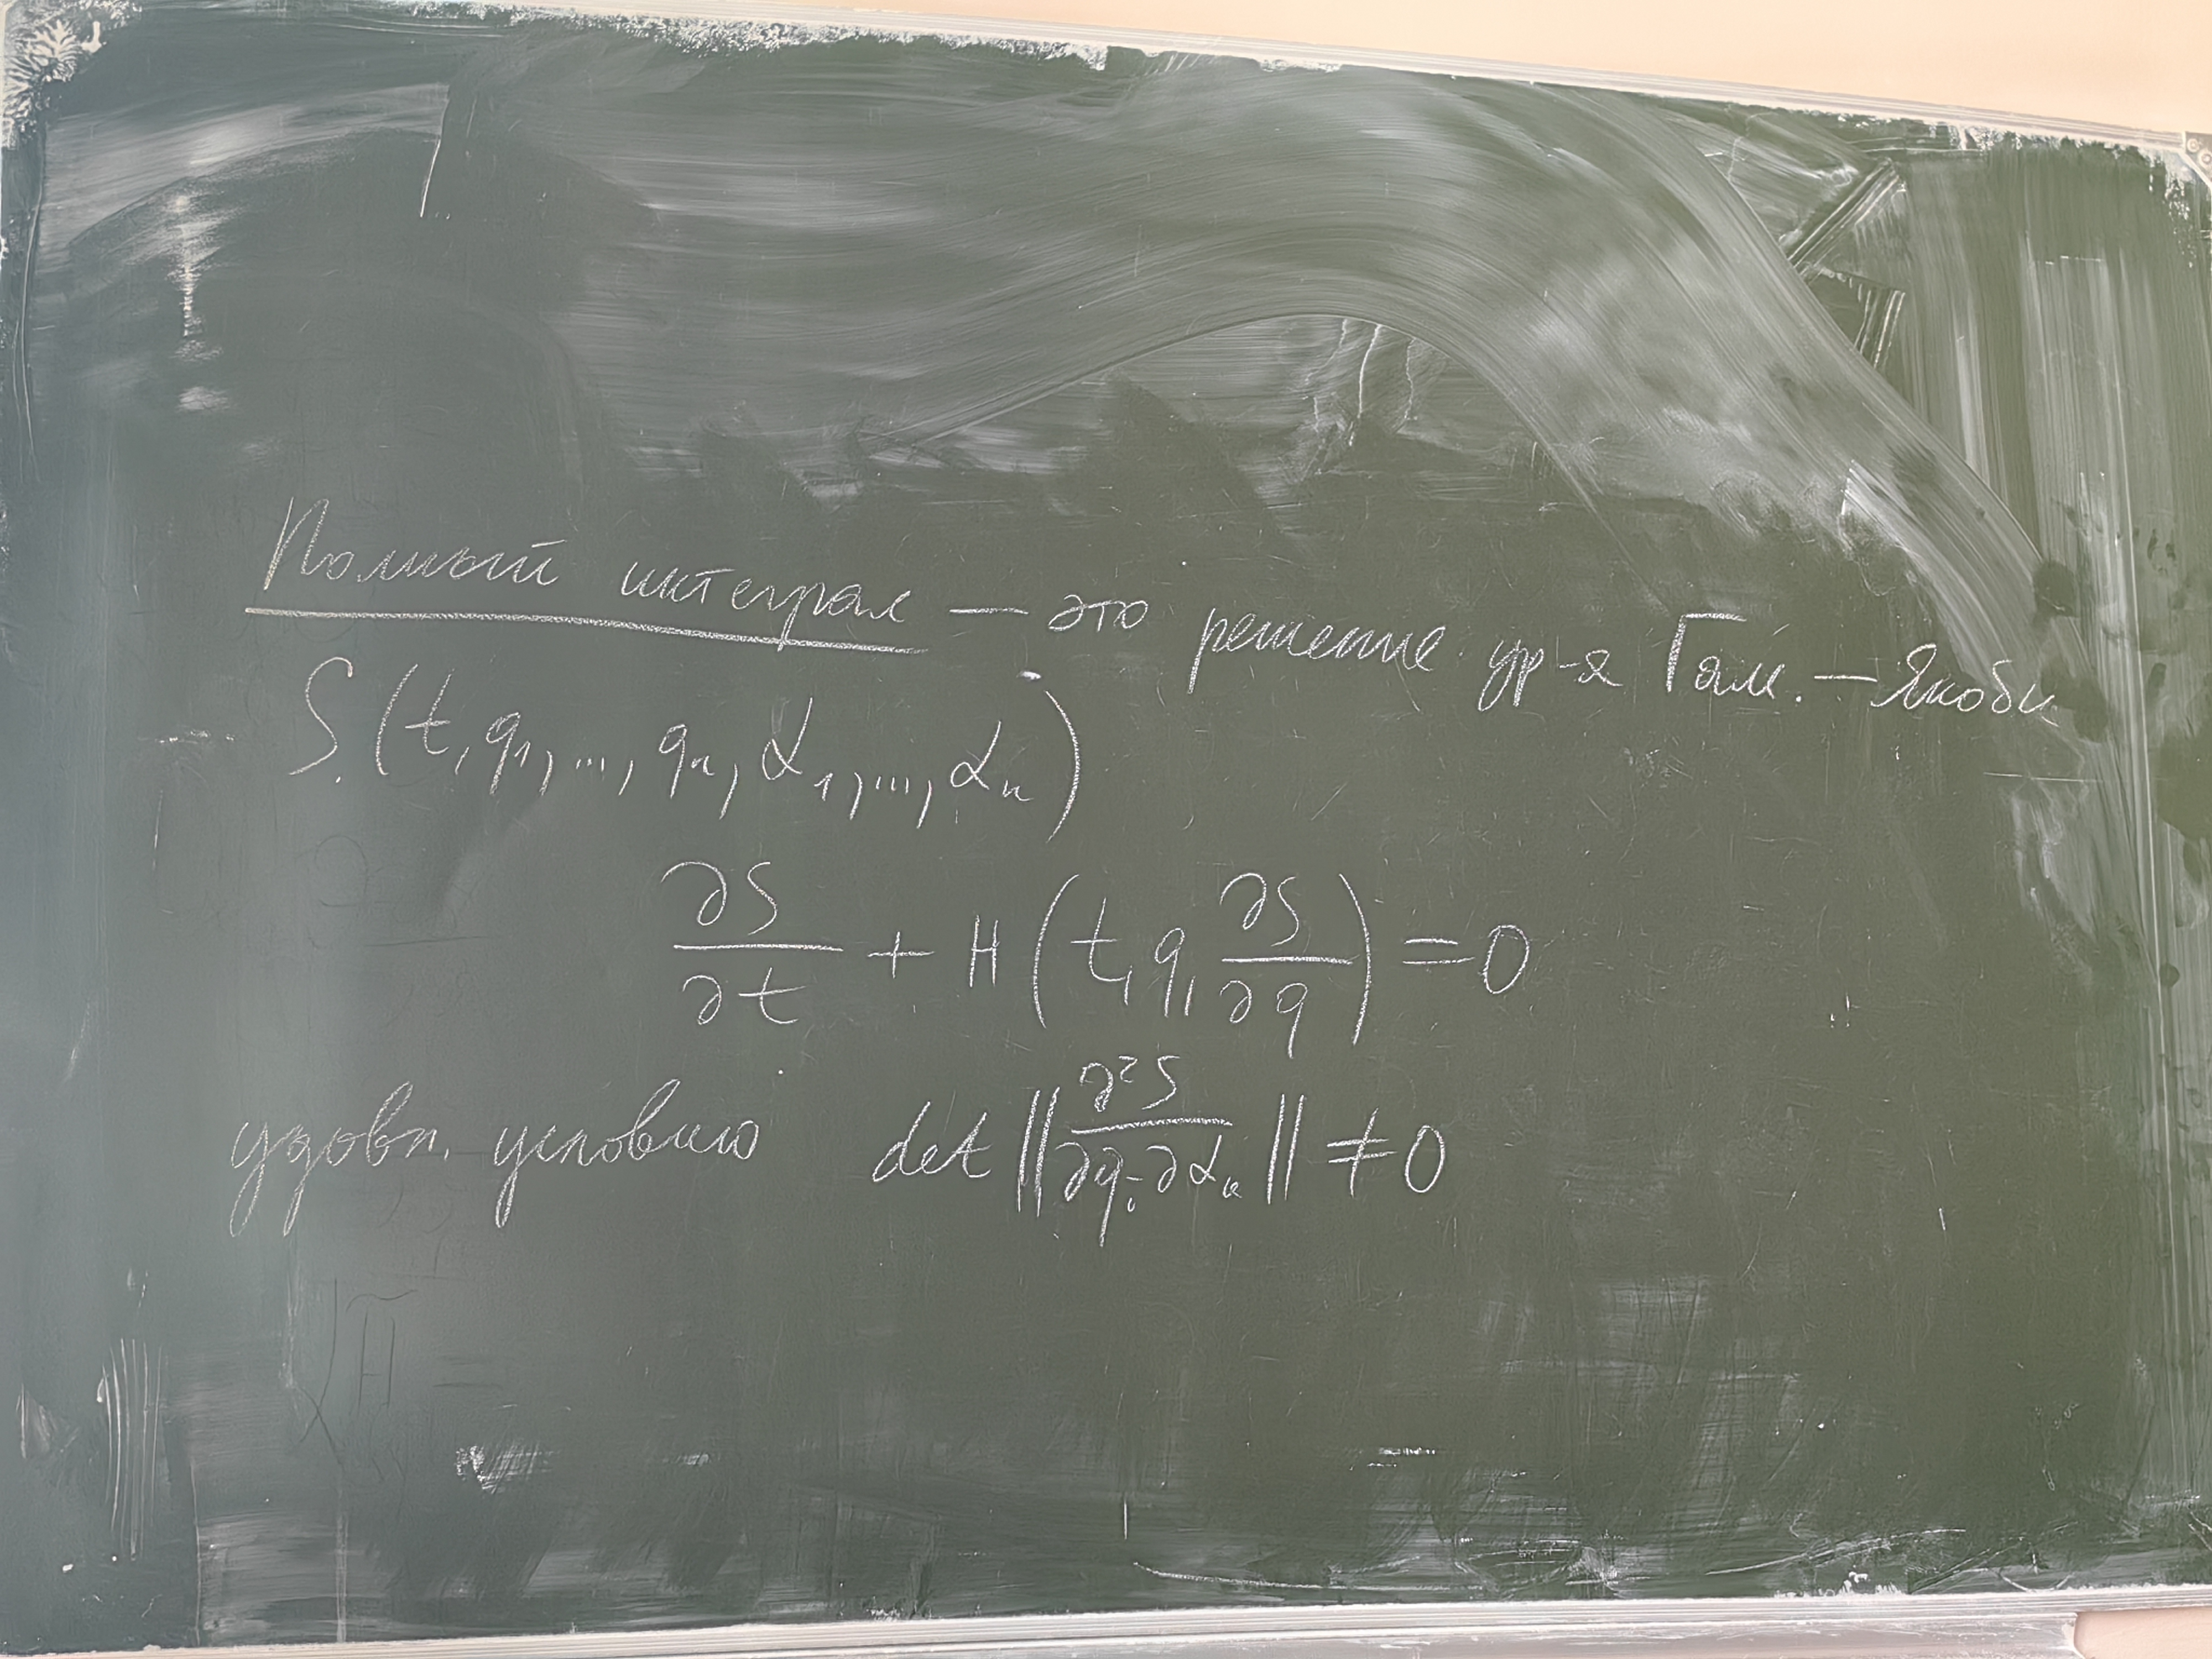 Полный интеграл — это решение ур-я Гам. — Якоби
S(t, q₁, ..., qₙ, α₁, ..., αₙ)
∂S/∂t + H(t, q, ∂S/∂q) = 0
удовл. условию det ‖∂²S/∂qᵢ∂αₖ‖ ≠ 0